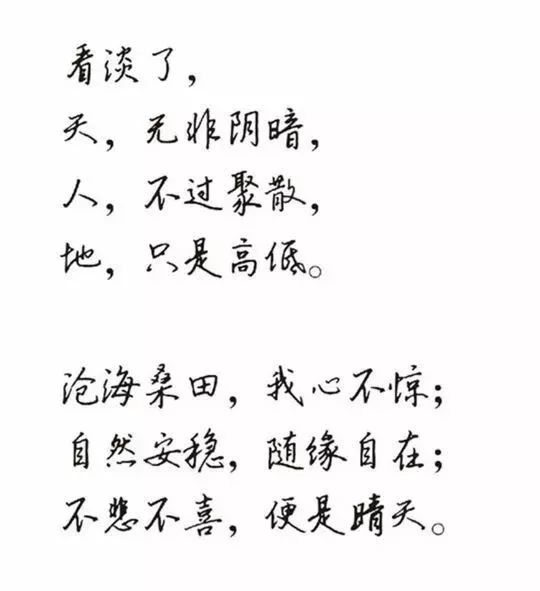 看淡了，
天，无非阴暗，
人，不过聚散，
地，只是高低。
沧海桑田，我心不惊；
自然安稳，随缘自在；
不悲不喜，便是晴天。